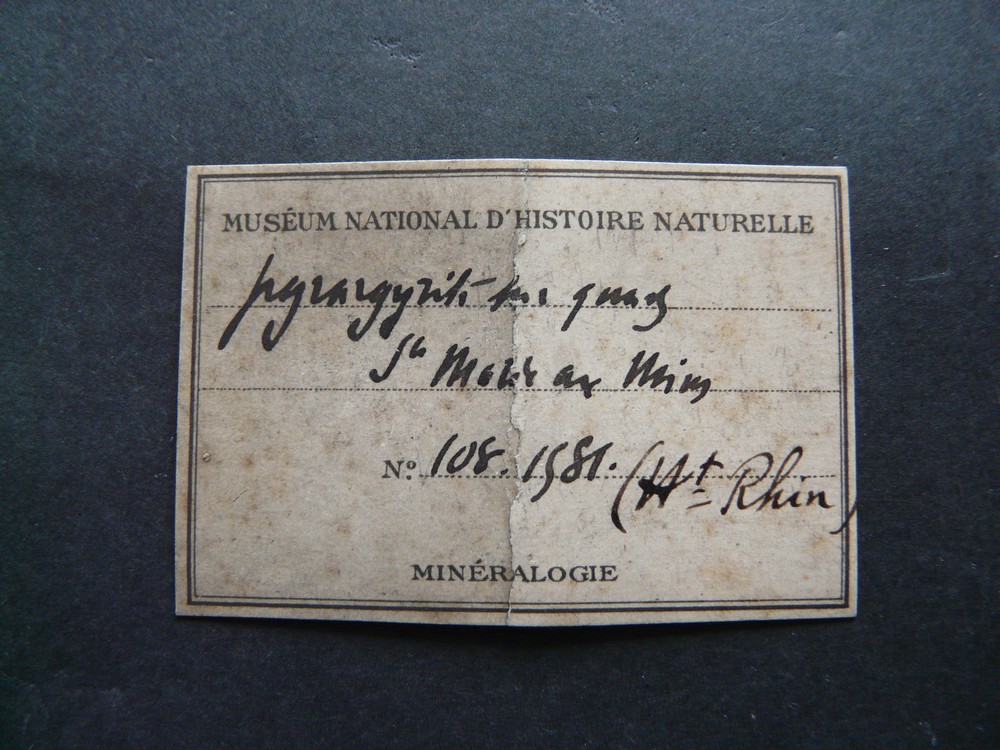 MUSÉUM NATIONAL D'HISTOIRE NATURELLE
pyrargyrite sur quartz
Ste Marie aux Mines
No. 108.1981. (Ht Rhin)
MINÉRALOGIE